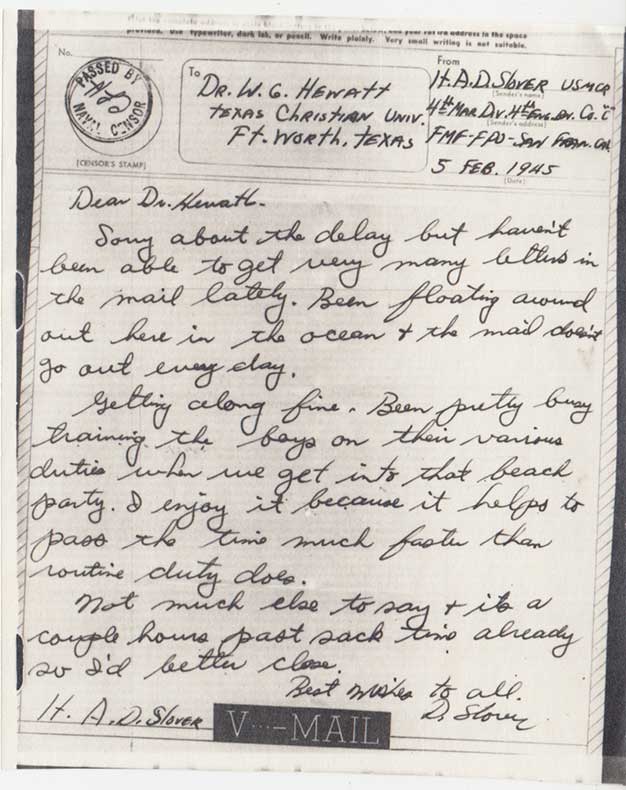 provided. Use typewriter, dark ink, or pencil. Write plainly. Very small writing is not suitable.
No.
PASSED BY
NAVAL CENSOR
[CENSOR'S STAMP]
To
DR. W. G. HEWATT
TEXAS CHRISTIAN UNIV.
FT. WORTH, TEXAS
From
H. A. D. SLOVER USMCR
(Sender's name)
4TH MAR. DIV. 4TH ENG. BN. CO. "C"
(Sender's address)
FMF-FPO-SAN FRAN. CAL
5 FEB. 1945
(Date)
Dear Dr. Hewatt-
Sorry about the delay but haven't
been able to get very many letters in
the mail lately. Been floating around
out here in the ocean + the mail doesn't
go out every day.
Getting along fine. Been pretty busy
training the boys on their various
duties when we get into that beach
party. I enjoy it because it helps to
pass the time much faster than
routine duty does.
Not much else to say + its a
couple hours past sack time already
so I'd better close.
Best wishes to all.
D. Slover
H. A. D. SLOVER
V···-MAIL